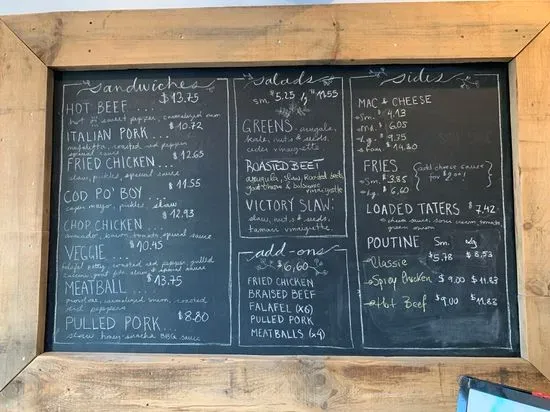 sandwiches
HOT BEEF ... $13.75
hot & sweet pepper, caramelized onion
ITALIAN PORK... $10.72
muffaletta, roasted red pepper
special sauce
FRIED CHICKEN... $12.63
slaw, pickles, special sauce
COD PO' BOY $11.55
cajun mayo, pickles, slaw
CHOP CHICKEN... $12.93
avocado, bacon, tomato, special sauce
VEGGIE $10.45
falafel patty, roasted red pepper, grilled
slaw & special sauce
MEATBALL... $13.75
provolone, caramelized onion, roasted
red peppers
PULLED PORK... $8.80
slaw, honey sriracha BBQ sauce
salads
sm. $5.25 lg $11.55
GREENS - arugula,
kale, nuts & seeds,
cider vinaigrette
ROASTED BEET
arugula, slaw, roasted beets,
goat cheese & balsamic
vinaigrette
VICTORY SLAW:
slaw, nuts & seeds,
tamari vinaigrette
add-ons
$6.60
FRIED CHICKEN
BRAISED BEEF
FALAFEL (x6)
PULLED PORK
MEATBALLS (x4)
sides
MAC & CHEESE
- Sm. $4.13
- Md. $6.05
- Lg. $9.75
- Fam $14.80
FRIES
- Sm. $3.85
- Lg $6.60
add cheese sauce
for $2.01
LOADED TATERS $7.42
cheese sauce, sour cream, tomato,
green onion
POUTINE Sm. Lg
- Classic $5.78 $8.53
- Spicy Chicken $9.00 $11.83
- Hot Beef $9.00 $11.83